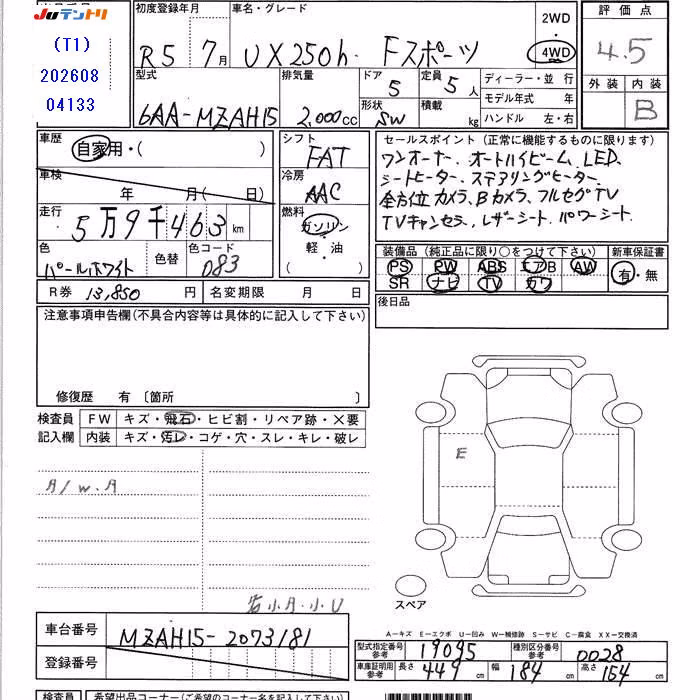 JUテントリ
(T1)
202608
04133
初度登録年月
R5 7月
車名・グレード
UX250h Fスポーツ
2WD
4WD
評価点
4.5
外装 内装
B
型式
6AA-MZAH15
排気量
2,000cc
ドア
5
形状
SW
定員
5人
積載
kg
ディーラー・並 行
モデル年式 年
ハンドル 左・右
車歴
自家用・( )
車検
年 月( 日)
走行
5万9千463km
色
パールホワイト
色替
色コード
083
シフト
FAT
冷房
AAC
燃料
ガソリン
軽・油
( )
セールスポイント(正常に機能するものに限ります)
ワンオーナー、オートハイビーム、LED、
シートヒーター、ステアリングヒーター、
全方位カメラ、Bカメラ、フルセグTV
TVキャンセラ、レザーシート、パワーシート
装備品(純正品に限り○をつけて下さい)
PS PW ABS エアB AW
SR ナビ TV カワ
新車保証書
有・無
R券 13,850円
名変期限 月 日
後日品
注意事項申告欄(不具合内容等は具体的に記入して下さい)
修復歴 有〔箇所 〕
検査員
記入欄
FW キズ・飛石・ヒビ割・リペア跡・×要
内装 キズ・汚レ・コゲ・穴・スレ・キレ・破レ
E
スペア
車台番号
MZAH15-2073181
登録番号
A-キズ E-エクボ U-凹み W-補修跡 S-サビ C-腐食 XX-交換済
型式指定番号
参考
19095
種別区分番号
参考
0028
車庫証明用
参考
長さ 449cm
幅 184cm
高さ 154cm
検査員
希望出品コーナー(ご希望のコーナー名を記入して下さい)